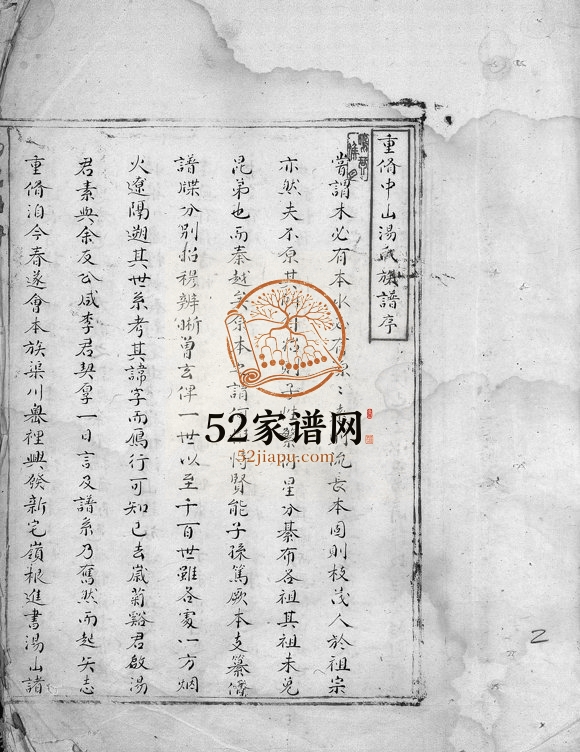 重脩中山湯氏族譜序
嘗謂木必有本水必有源源長本固則枝茂人於祖宗
亦然夫不原其星分綦布各祖其祖未免
昆弟也而秦越矣本賢能子孫篤厥本支纂脩
譜牒分別昭穆辨晰曾玄俾一世以至千百世雖各處一方烟
火遼隔遡其世系考其諱字而鴈行可知已去歲菊谿君啟湯
君素與余友公咸李君契厚一日言及譜系乃奮然而起矢志
重脩洎今春遂會本族渠川裡興發新宅嶺根進書湯山諸
52家谱网
52jiapu.com
2